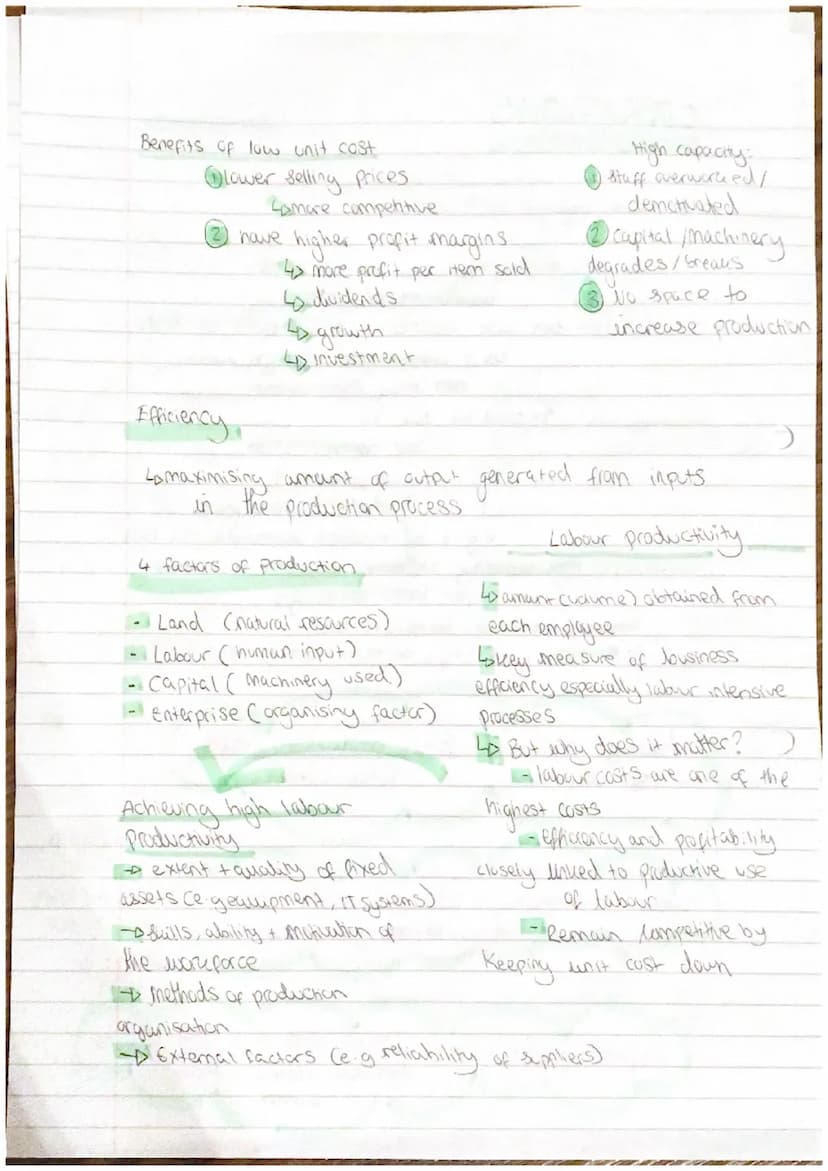 Benefits of low unit cost
① lower selling prices
↳ more competitive
② have higher profit margins
↳ more profit per item sold
↳ dividends
↳ growth
↳ investment
High capacity:
① Staff overworked /
demotivated
② Capital / machinery
degrades / breaks
③ No space to
increase production
Efficiency
↳ maximising amount of output generated from inputs
in the production process
4 factors of production
- Land (natural resources)
- Labour (human input)
- Capital (machinery used)
- Enterprise (organising factor)
Labour productivity
↳ amount (volume) obtained from
each employee
↳ Key measure of business
efficiency especially labour intensive
processes
↳ But why does it matter?
- labour costs are one of the
highest costs
- efficiency and profitability
closely linked to productive use
of labour
- Remain competitive by
keeping unit cost down
Achieving high labour
productivity
→ extent + quality of fixed
assets (e.g equipment, IT systems)
→ Skills, ability + motivation of
the workforce
→ Methods of production
organisation
→ External factors (e.g reliability of suppliers)